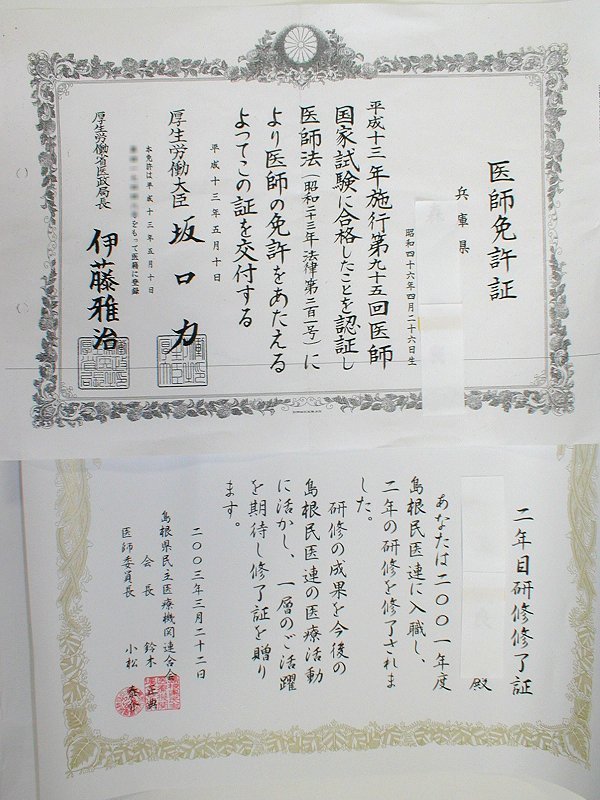 医師免許証
兵庫県
昭和四十六年四月二十六日生
平成十三年施行第九十五回医師
国家試験に合格したことを認証し
医師法(昭和二十三年法律第二百一号)に
より医師の免許をあたえる
よってこの証を交付する
平成十三年五月十日
厚生労働大臣 坂口力
本免許は平成十三年五月十日
をもって医籍に登録
厚生労働省医政局長 伊藤雅治
二年目研修修了証
殿
あなたは二〇〇一年度
島根民医連に入職し、
二年の研修を修了されま
した。
研修の成果を今後の
島根民医連の医療活動
に活かし、一層のご活躍
を期待し修了証を贈り
ます。
二〇〇三年三月二十二日
島根県民主医療機関連合会
会長 鈴木正典
医師委員長 小松泰介